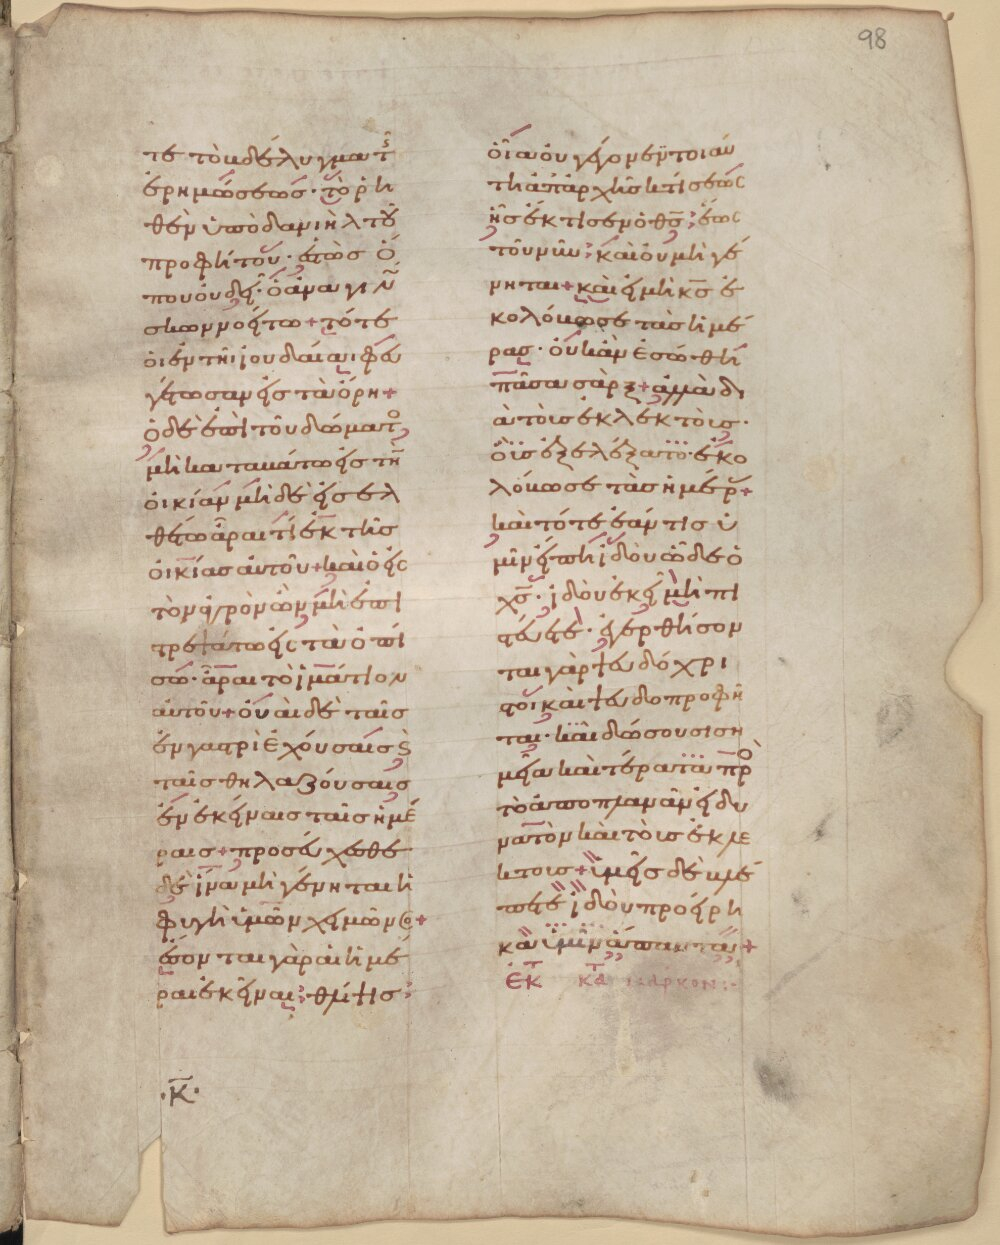 98
τε τὸ βδέλυγμα τῆς
ἐρημώσεως· τὸ ῥη
θὲν ὑπὸ δανιὴλ τοῦ
προφήτου· ἑστὼς ὅ
που οὐ δεῖ· ὁ ἀναγιν
σκων νοείτω + τότε
οἱ ἐν τῆ ἰουδαία φευ
γέτωσαν εἰς τὰ ὄρη +
ὁ δὲ ἐπὶ τοῦ δώματο
μὴ καταβάτω εἰς τὴν
οἰκίαν μὴ δὲ εἰσελ
θέτω ἆραι τί ἐκ τῆς
οἰκίας αὐτοῦ + καὶ ὁ εἰς
τὸν ἀγρὸν ὢν μὴ ἐπι
τρεψάτω εἰς τὰ ὀπί
σω· ἆραι τὸ ἱμάτιον
αὐτοῦ + οὐαὶ δὲ ταῖς
ἐν γαστρὶ ἐχούσαις ϗ
ταῖς θηλαζούσαις
ἐν ἐκείναις ταῖς ἡμέ
ραις + προσεύχεσθε
δὲ ἵνα μὴ γένηται ἡ
φυγὴ ὑμῶν χειμῶνο +
ἔσονται γὰρ αἱ ἡμέ
ραι ἐκείναι; θλίψις;
·κ̅·
οἵα οὐ γέγονεν τοιαύ
τη ἀπ ἀρχῆς κτίσεως
ἧς ἔκτισεν ὁ θς̅; ἕως
τοῦ νῦν; καὶ οὐ μὴ γέ
νηται + καὶ εἰ μὴ κς̅ ἐ
κολόβωσε τὰς ἡμέ
ρας· οὐκ ἂν ἐσώθη
πᾶσα σὰρξ + ἀλλὰ δι
ὰ τοὺς ἐκλεκτοὺς·
οὓς ἐξελέξατο· ἐκο
λόβωσε τὰς ἡμέρ +
καὶ τότε ἐάν τις ὑ
μῖν εἴπη ἰδοὺ ὧδε ὁ
χς̅· ἰδοὺ ἐκεῖ μὴ πι
στεύετε· ἐγερθήσον
ται γὰρ ψευδόχρι
στοι καὶ ψευδοπροφῆ
ται· καὶ δώσουσι ση
μεῖα καὶ τέρατα πρὸ
τὸ ἀποπλανᾶν εἰ δυ
νατὸν καὶ τοὺς ἐκλε
κτους + ὑμεῖς δὲ βλέ
πετε ἰδοὺ προείρη
κα ὑμῖν ἅπαντα +
ἐκ̅ κατ̅ μάρκον:-